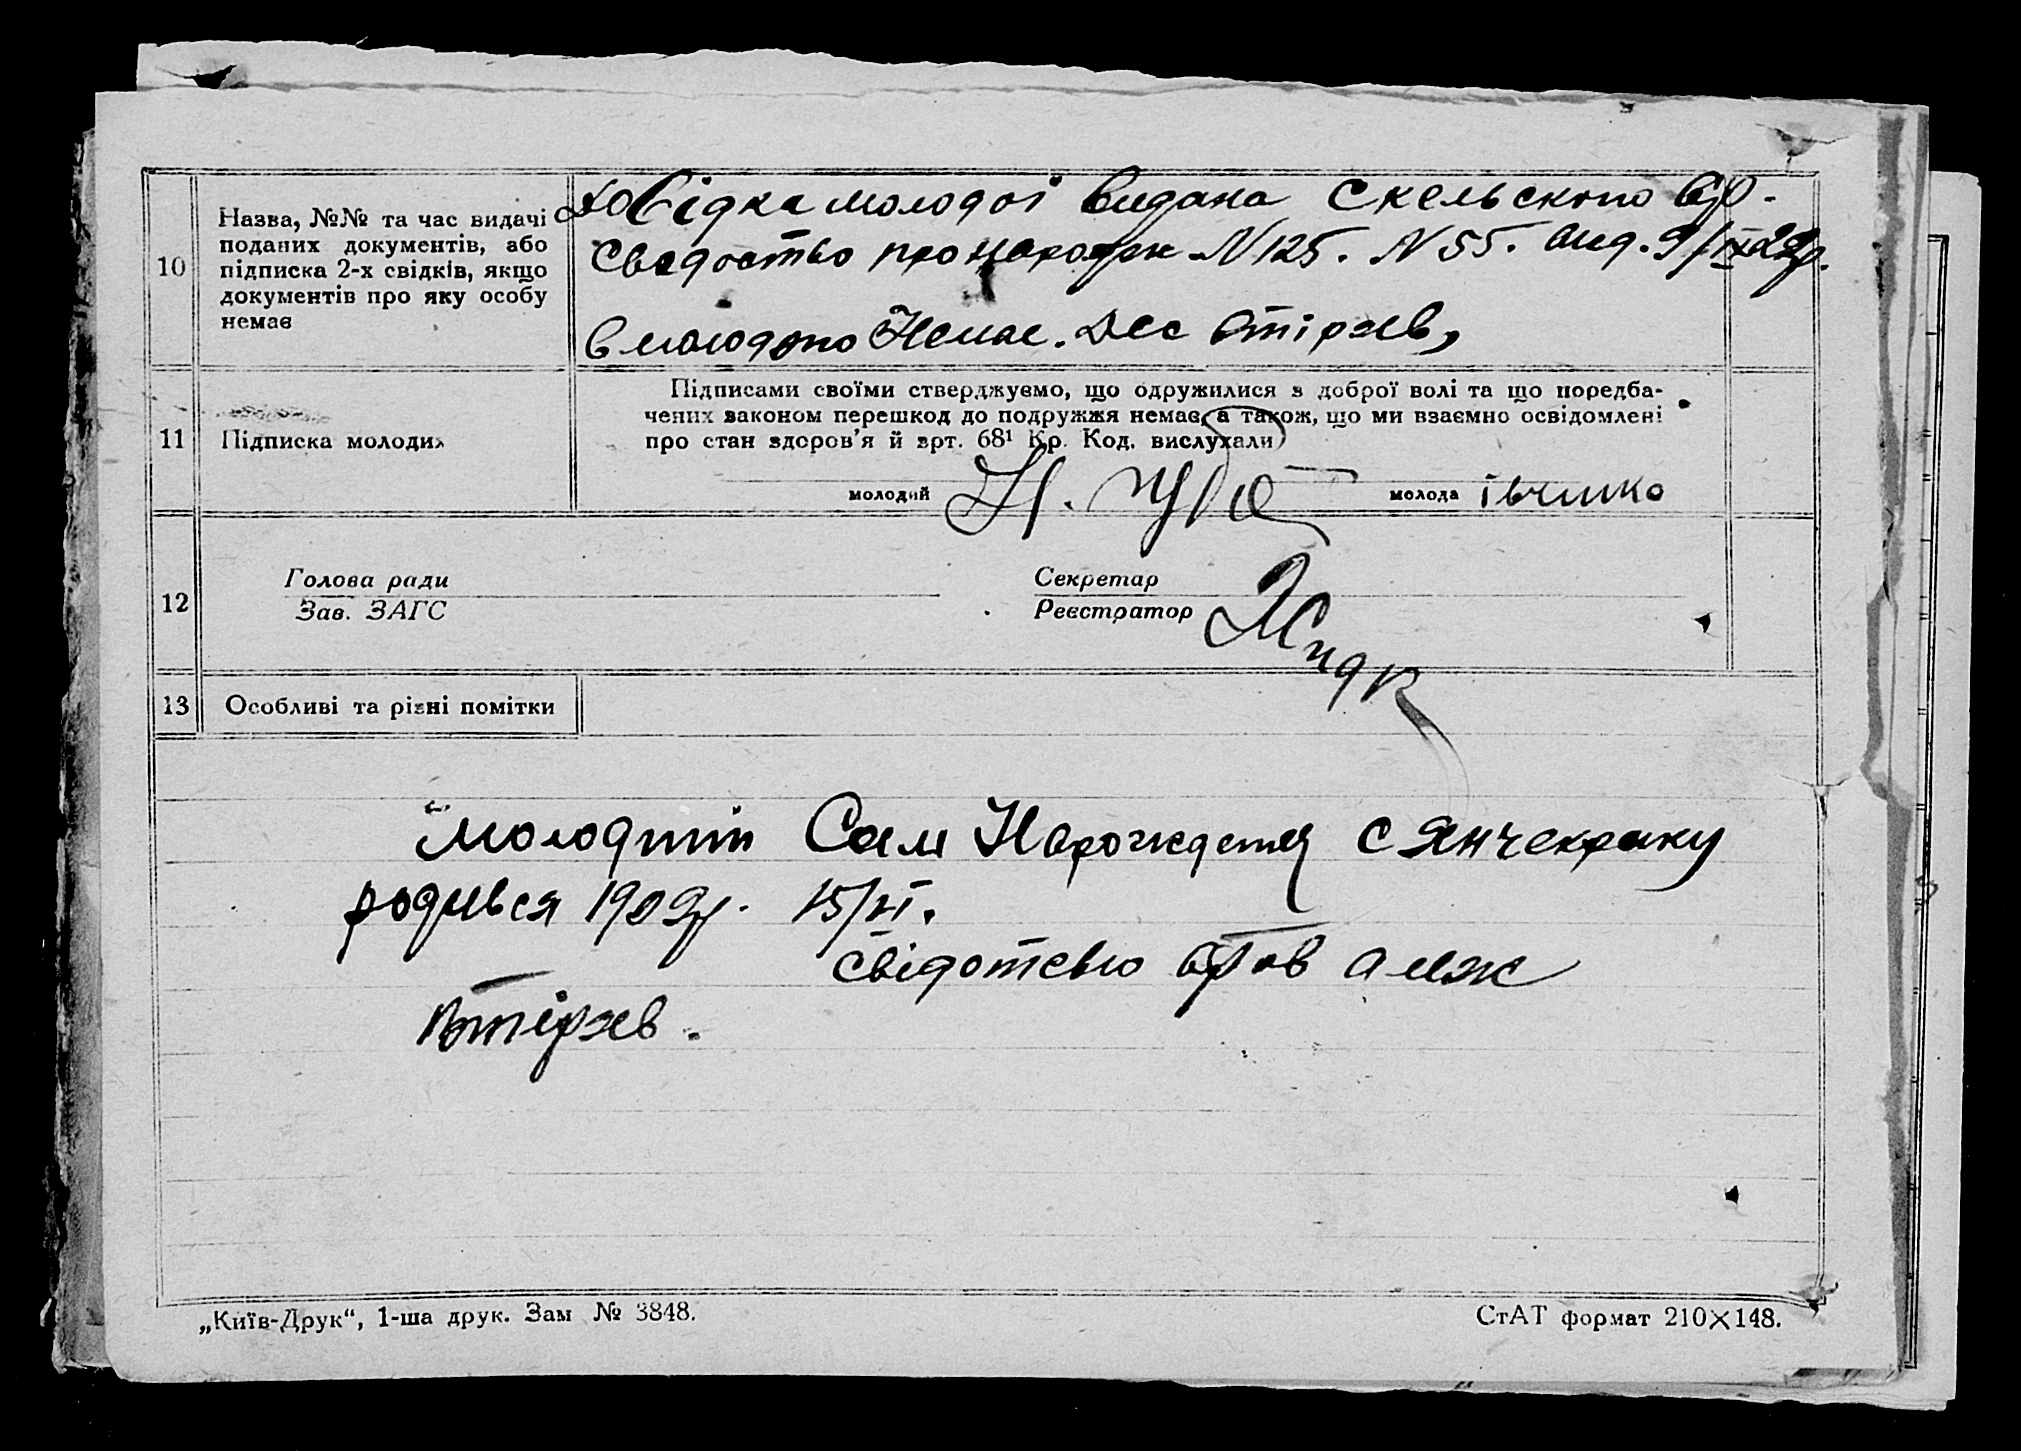 10
Назва, №№ та час видачі
поданих документів, або
підписка 2-х свідків, якщо
документів про яку особу
немає
Довідка молодої видана Скельского
Сведоство про нарожден N 125. N 55. вид. 9/IX 29р.
в молодого Немае. Десь отіряв,
11
Підписка молодих
Підписами своїми стверджуємо, що одружилися з доброї волі та що поредба-
чених законом перешкод до подружжя немає, а також, що ми взаємно освідомлені
про стан здоров'я й арт. 68¹ Кр. Код. вислухали
молодий
молода івчинко
12
Голова ради
Зав. ЗАГС
Секретар
Реєстратор
13
Особливі та різні помітки
Сам Нарождения с Янчекраку
родився 1909р.
свідотсвю
втіряв.
„Київ-Друк“, 1-ша друк. Зам № 3848.
СтАТ формат 210×148.